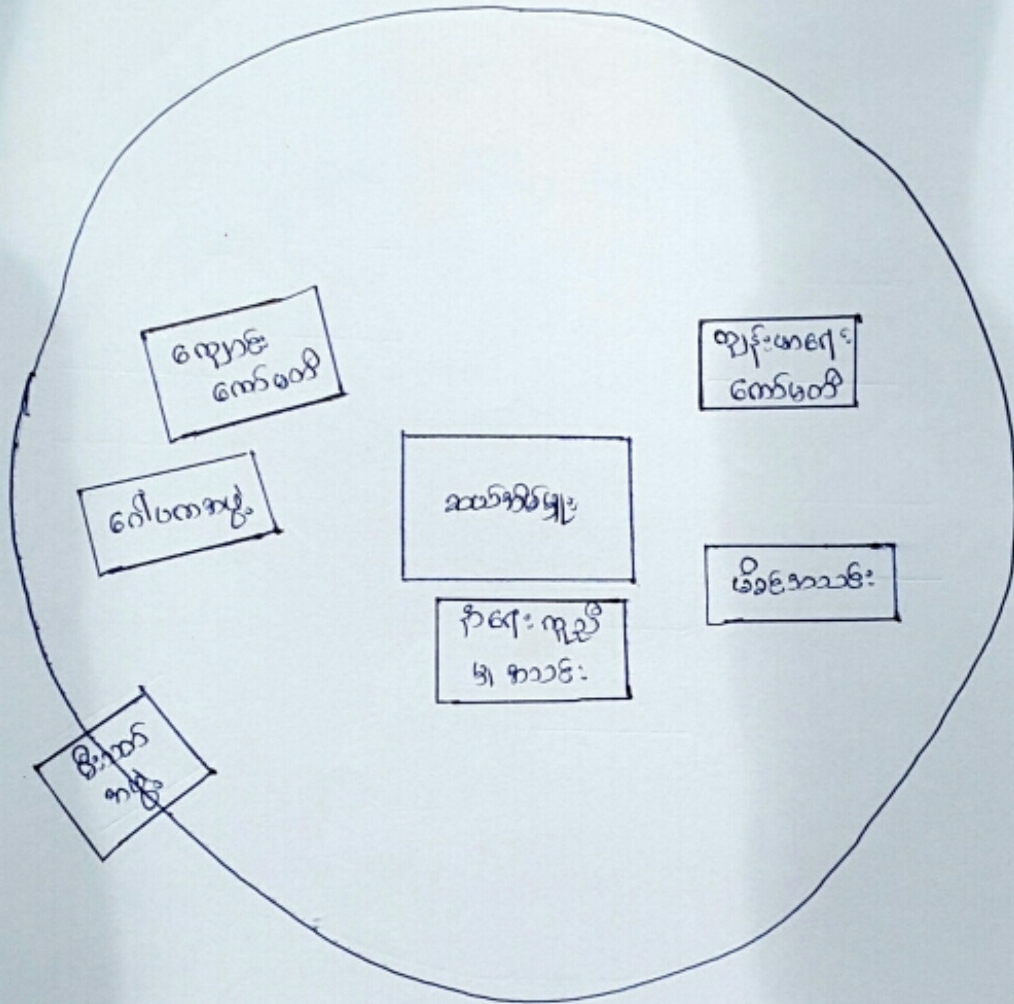 ကျောင်း
ကော်မတီ
ကျန်းမာရေး
ကော်မတီ
ဂေါပကအဖွဲ့
ဆယ်အိမ်မှူး
မိခင်အသင်း
နာရေးကူညီ
မှု အသင်း
မီးသတ်
အဖွဲ့